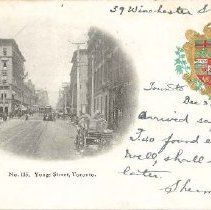 59 Winchester S
Toronto
Dec 3
Arrived sa
Two found e
Well shall
later.
Sherm
No. 135. Yonge Street, Toronto.